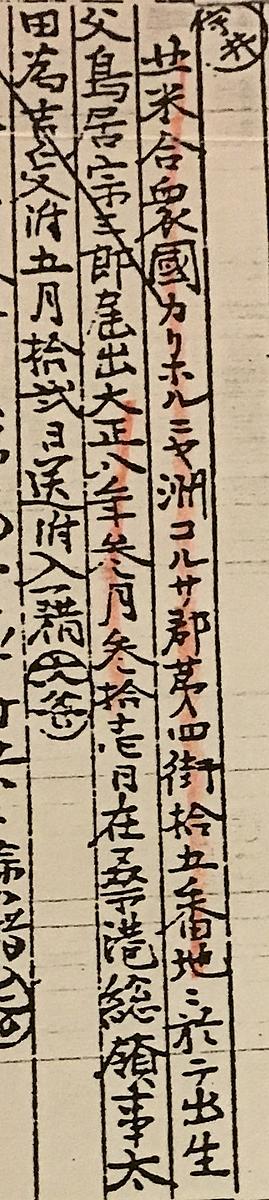 北米合衆國カリホルニヤ洲コルサ郡第四街拾五番地ニ於テ出生
父鳥居宗三郎届出大正八年参月参拾壱日在桑港総領事太
田為吉受附五月拾弐日送附入籍